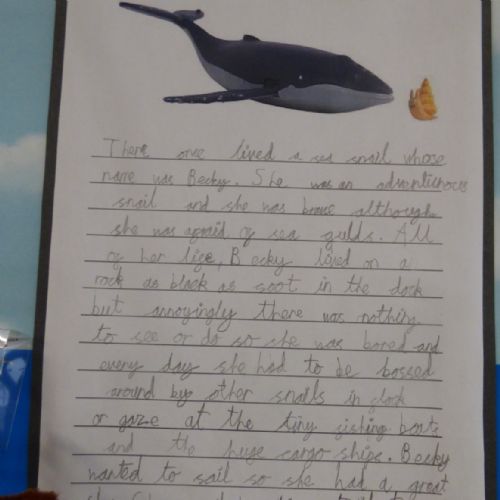 There once lived a sea snail whose
name was Becky. She was an adventichoces
snail and she was brave although
she was afraid of sea gulls. All
of her life, Becky lived on a
rock as black as soot in the dock
but annoyingly there was nothing
to see or do so she was bored and
every day she had to be bossed
around by other snails in dock
or gaze at the tiny fishing boats
and the huge cargo ships. Becky
wanted to sail so she had a great